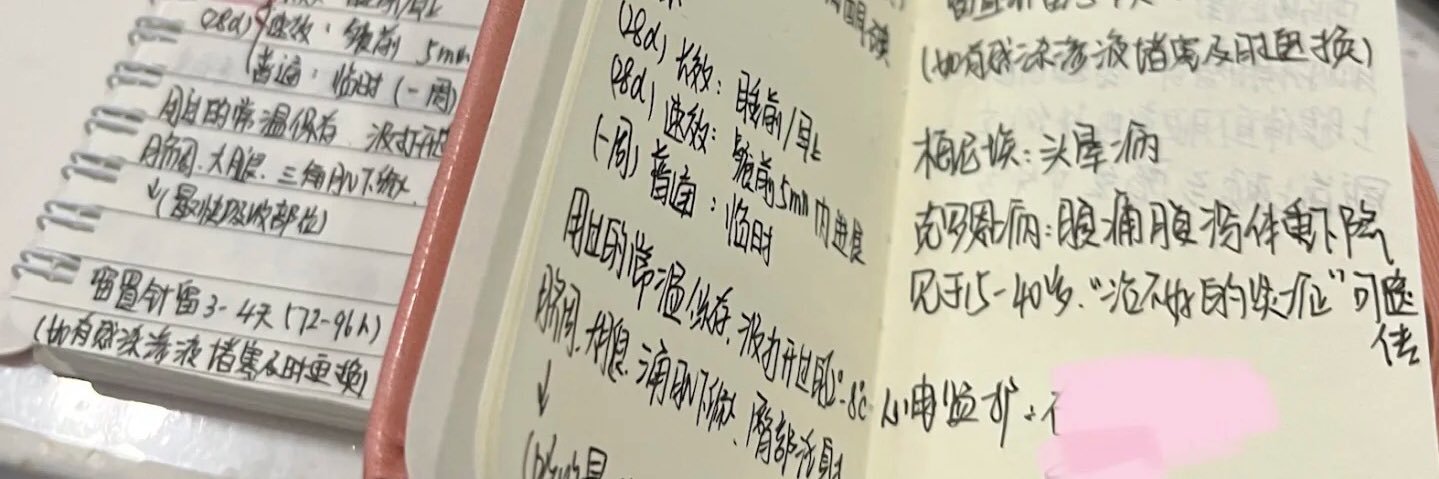 (28d) 速效：餐前 5min
(普通：临时 (一周)
用过的常温保存 没打开过
脐周、大腿、三角肌下缘
↓(最快吸收部位)
留置针留3-4天 (72-96h)
(如有感染渗液堵塞及时更换)
(28d) 长效：睡前/早上
(28d) 速效：餐前5min内进食
(一周) 普通：临时
用过的常温保存、没打开过的2°-8℃
脐周、大腿、三角肌下缘、臀部注射
↓
(如有感染渗液堵塞及时更换)
梅尼埃：头晕病
克罗恩病：腹痛腹泻体重下降
见于15-40岁、"治不好的炎症" 可遗
传
心电监护：